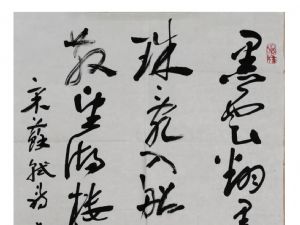 黑云翻墨
珠乱入船
散望湖楼
宋蘇軾詩